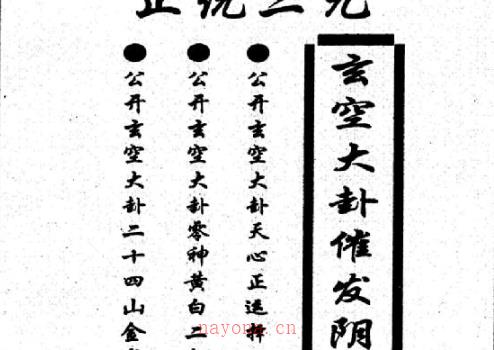 正统三元
玄空大卦催发阴
公开玄空大卦天心正运择
公开玄空大卦零神黄白二
公开玄空大卦二十四山金
nayona.cn